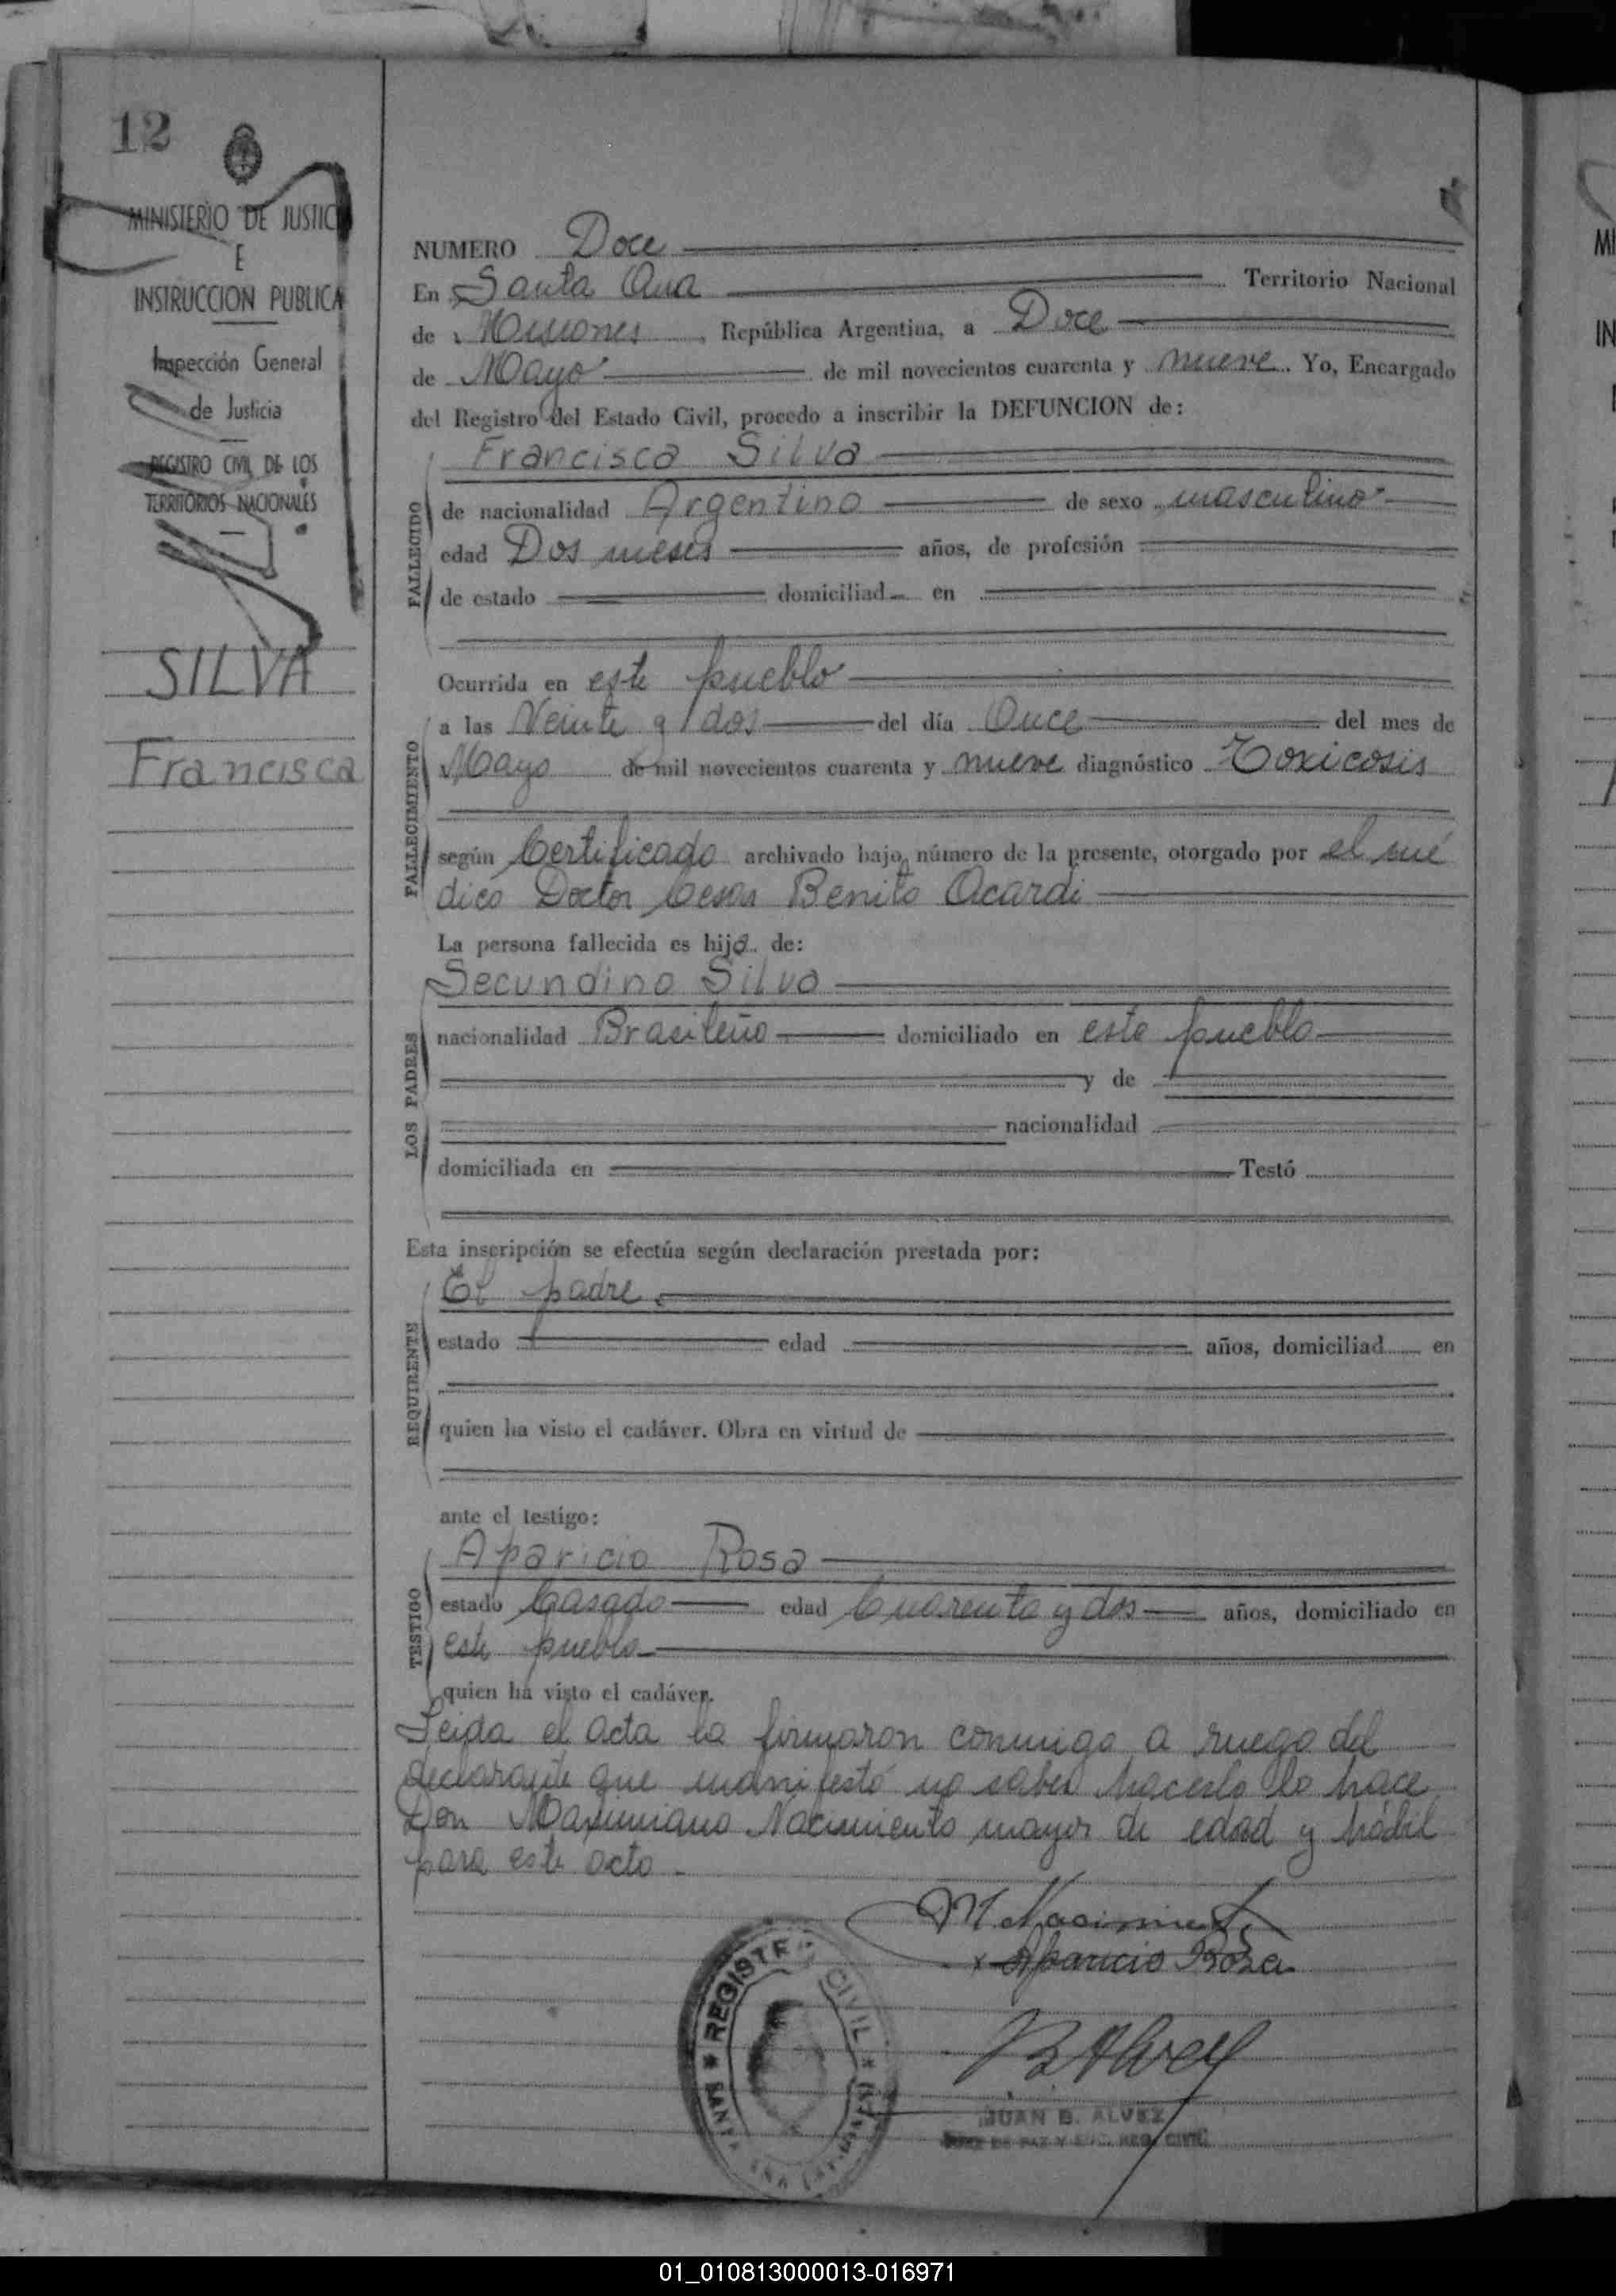 12
MINISTERIO DE JUSTICI
E
INSTRUCCION PUBLICA
Inspección General
de Justicia
REGISTRO CIVIL DE LOS
TERRITORIOS NACIONALES
SILVA
Francisca
NUMERO Doce
En Santa Ana Territorio Nacional
de Misiones, República Argentina, a Doce
de Mayo de mil novecientos cuarenta y nueve. Yo, Encargado
del Registro del Estado Civil, procedo a inscribir la DEFUNCION de:
Francisca Silva
FALLECIDO
de nacionalidad Argentina de sexo masculino
edad Dos meses años, de profesión
de estado domiciliad en
Ocurrida en este pueblo
FALLECIMIENTO
a las Veinte y dos del día Once del mes de
Mayo de mil novecientos cuarenta y nueve diagnóstico Toxicosis
según Certificado archivado bajo número de la presente, otorgado por el mé
dico Doctor Cesar Benito Acardi
La persona fallecida es hijo de:
LOS PADRES
Secundino Silva
nacionalidad Brasileño domiciliado en este pueblo
y de
nacionalidad
domiciliada en Testó
Esta inscripción se efectúa según declaración prestada por:
REQUIRENTE
El padre
estado edad años, domiciliad en
quien ha visto el cadáver. Obra en virtud de
ante el testigo:
TESTIGO
Aparicio Rosa
estado Casado edad Cuarenta y dos años, domiciliado en
este pueblo
quien ha visto el cadáver.
Leida el acta la firmaron conmigo a ruego del
declarante que manifestó no saber hacerlo lo hace
Don Maximiano Nacimiento mayor de edad y hábil
para este acto
M Nacimiento
x Aparicio Roza
REGISTRO CIVIL
SANTA ANA
B Alvez
JUAN B. ALVEZ
JUEZ DE PAZ Y ENC. REG. CIVIL
MI
IN
01_010813000013-016971